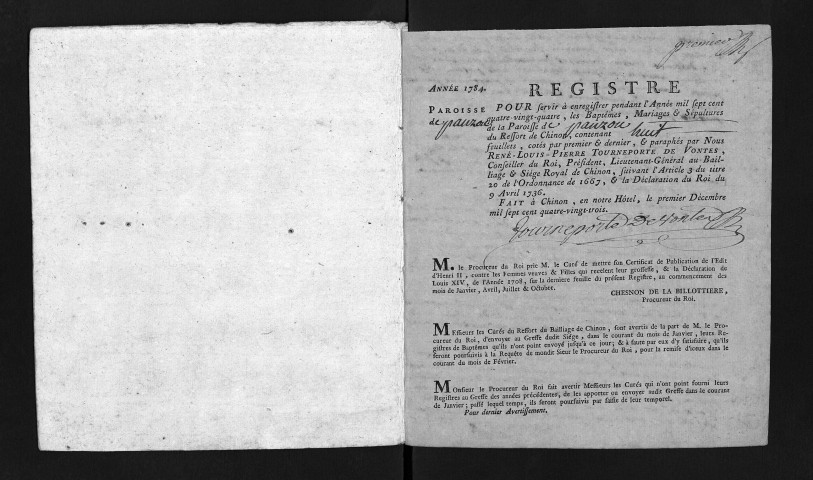 premier
ANNÉE 1784.
REGISTRE
PAROISSE
de panzou
POUR servir à enregistrer pendant l'Année mil sept cent
quatre-vingt-quatre, les Baptêmes, Mariages & Sépultures
de la Paroisse de panzou
du Ressort de Chinon, contenant huit
feuillets, cotés par premier & dernier, & paraphés par Nous
RENÉ-LOUIS-PIERRE TOURNEPORTE DE VONTES,
Conseiller du Roi, Président, Lieutenant-Général au Bail-
liage & Siége Royal de Chinon, suivant l'Article 3 du titre
20 de l'Ordonnance de 1667, & la Déclaration du Roi du
9 Avril 1736.
FAIT à Chinon, en notre Hôtel, le premier Décembre
mil sept cent quatre-vingt-trois.
Tourneporte De Vontes
M. le Procureur du Roi prie M. le Curé de mettre son Certificat de Publication de l'Edit
d'Henri II, contre les Femmes veuves & Filles qui recelent leur grossesse, & la Déclaration de
Louis XIV, de l'Année 1708, sur la derniere feuille du présent Registre, au commencement des
mois de Janvier, Avril, Juillet & Octobre.
CHESNON DE LA BILLOTTIERE,
Procureur du Roi.
MESsieurs les Curés du Ressort du Bailliage de Chinon, sont avertis de la part de M. le Pro-
cureur du Roi, d'envoyer au Greffe dudit Siége, dans le courant du mois de Janvier, leurs Re-
gistres de Baptêmes qu'ils n'ont point envoyé jusqu'à ce jour; & à faute par eux d'y satisfaire, qu'ils
seront poursuivis à la Requête de mondit Sieur le Procureur du Roi, pour la remise d'iceux dans le
courant du mois de Février.
MONsieur le Procureur du Roi fait avertir Messieurs les Curés qui n'ont point fourni leurs
Registres au Greffe des années précédentes, de les apporter ou envoyer audit Greffe dans le courant
de Janvier; passé lequel temps, ils seront poursuivis par saisie de leur temporel.
Pour dernier Avertissement.